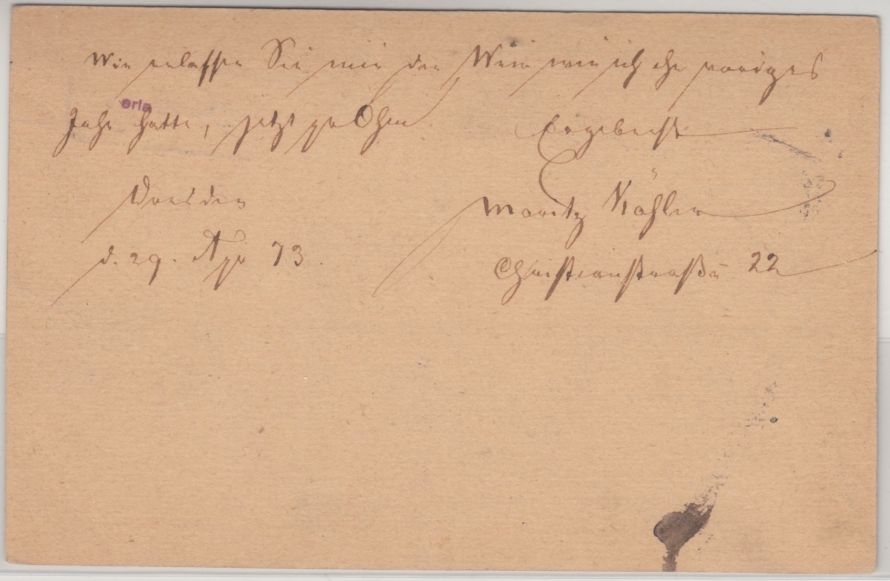 Wie erlassen Sie mir den Wein wie ich ihn voriges
Jahr hatte, jetzt
Ergebenst
Dresden
Moritz Köhler
d. 29. Apr 73.
Christianstraße 22